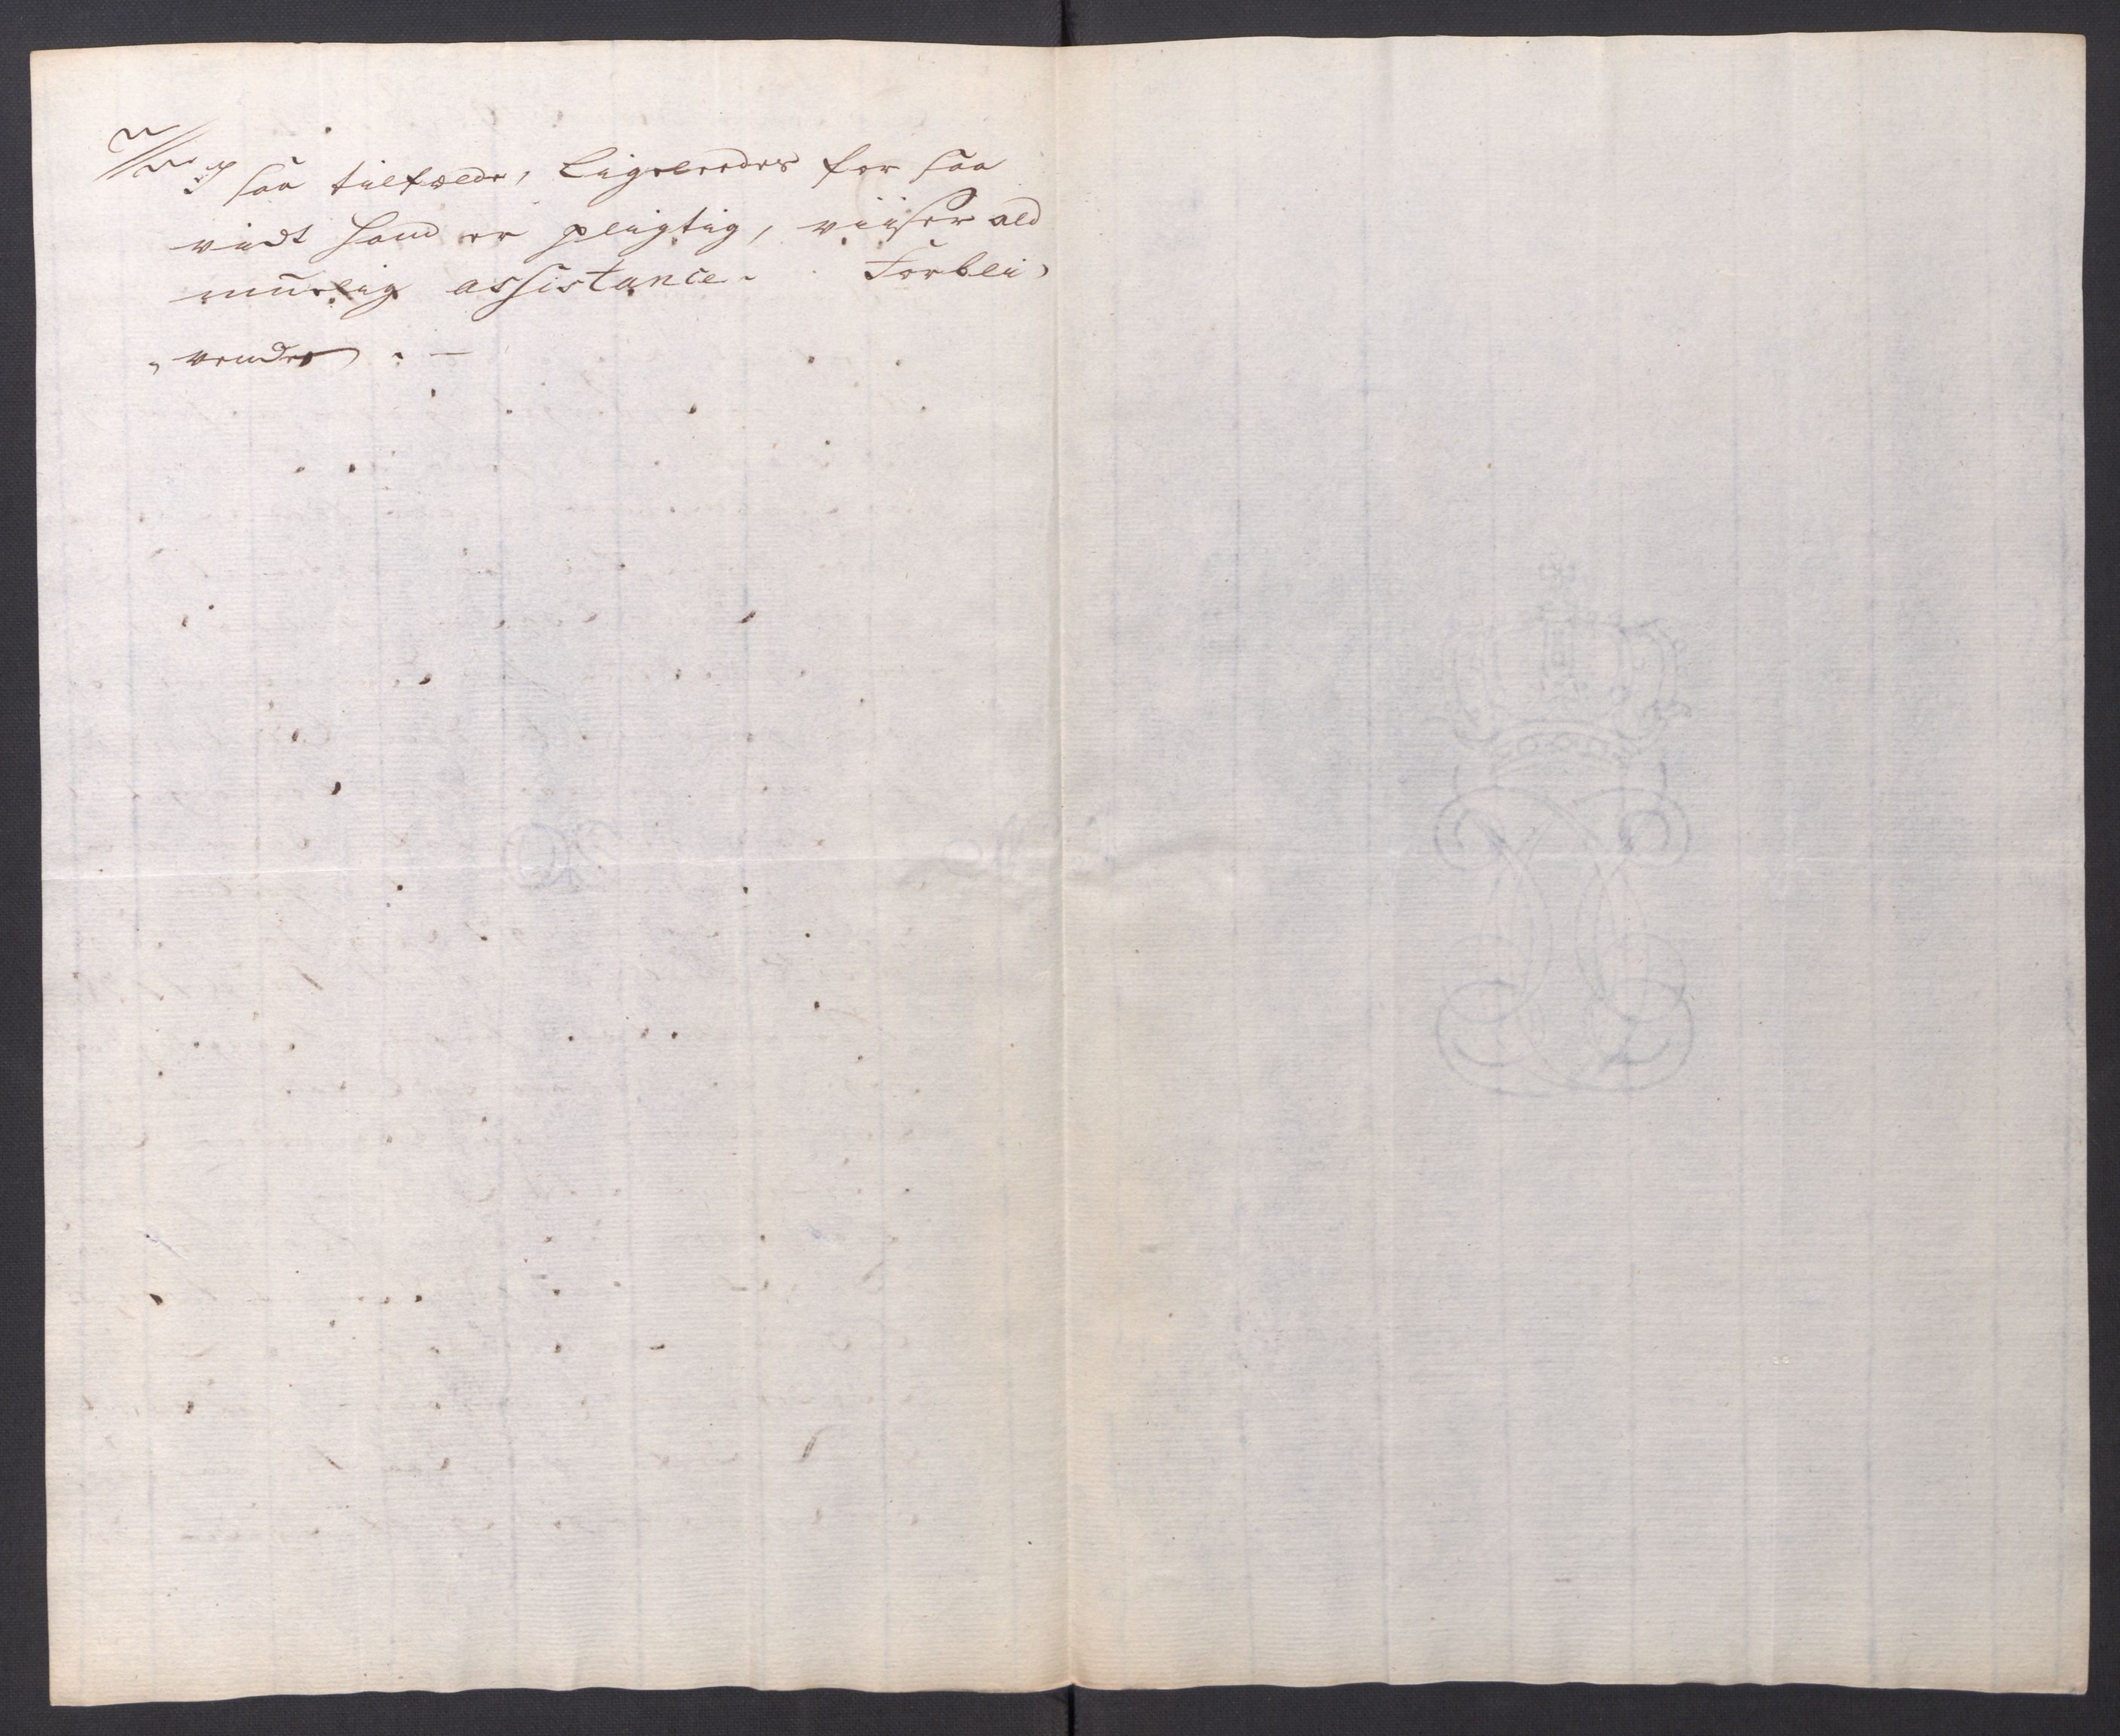 I saa tilfælde, Ligeleedes for saa
vidt hand er pligtig, viiser ald
muelig assistance. Forbli-
vendes. –